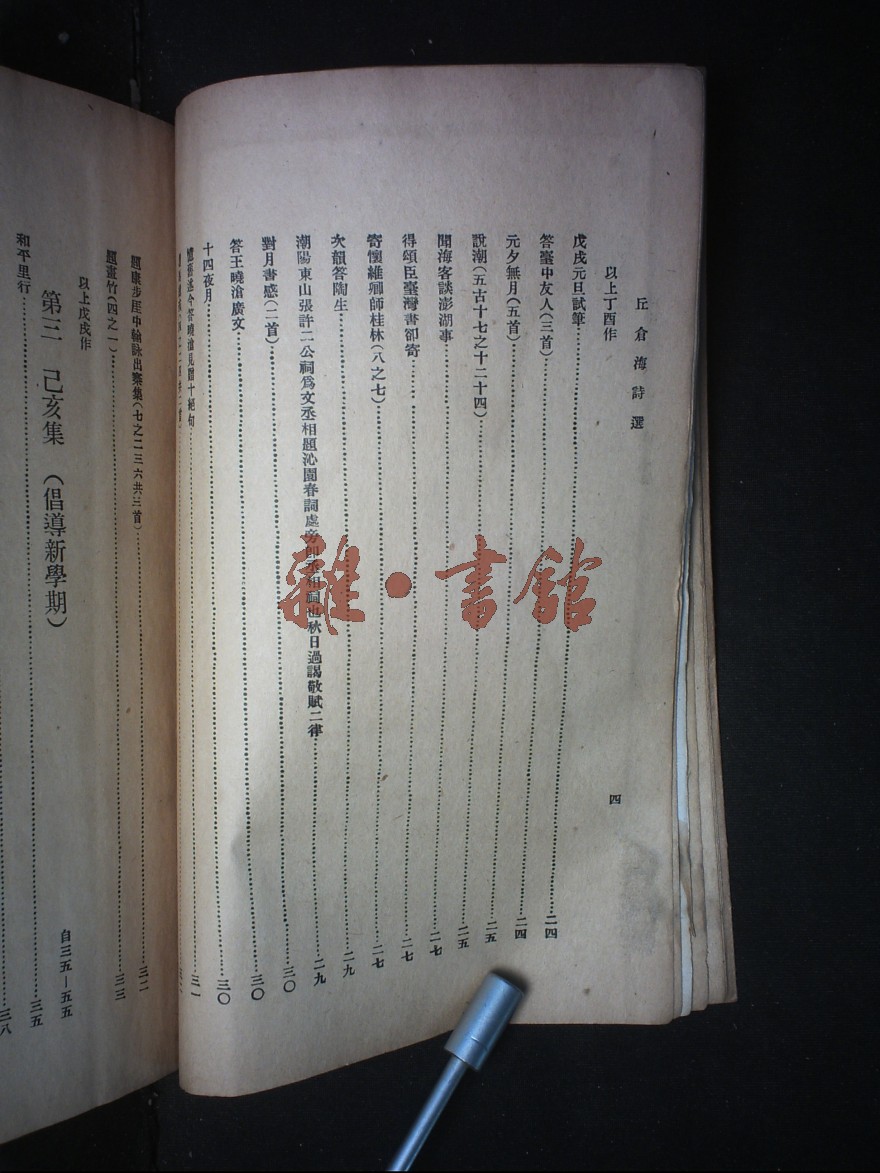 丘倉海詩選
四
以上丁酉作
戊戌元旦試筆……二四
答臺中友人(三首)……二四
元夕無月(五首)……二五
說潮(五古十七之十二十四)……二五
聞海客談澎湖事……二七
得頌臣臺灣書卻寄……二七
寄懷維卿師桂林(八之七)……二七
次韻答陶生……二九
潮陽東山張許二公祠爲文丞相題沁園春詞處旁卽丞相祠也秋日過謁敬賦二律……二九
對月書感(二首)……三〇
答王曉滄廣文……三〇
十四夜月……三〇
憶舊述今答曉滄見贈十絕句……三一
題康步崖中翰詠出塞集(七之二三六共三首)……三二
題畫竹(四之一)……三三
以上戊戌作
第三 己亥集(倡導新學期) 自三五—五五
和平里行……三五
三八
雜·書館